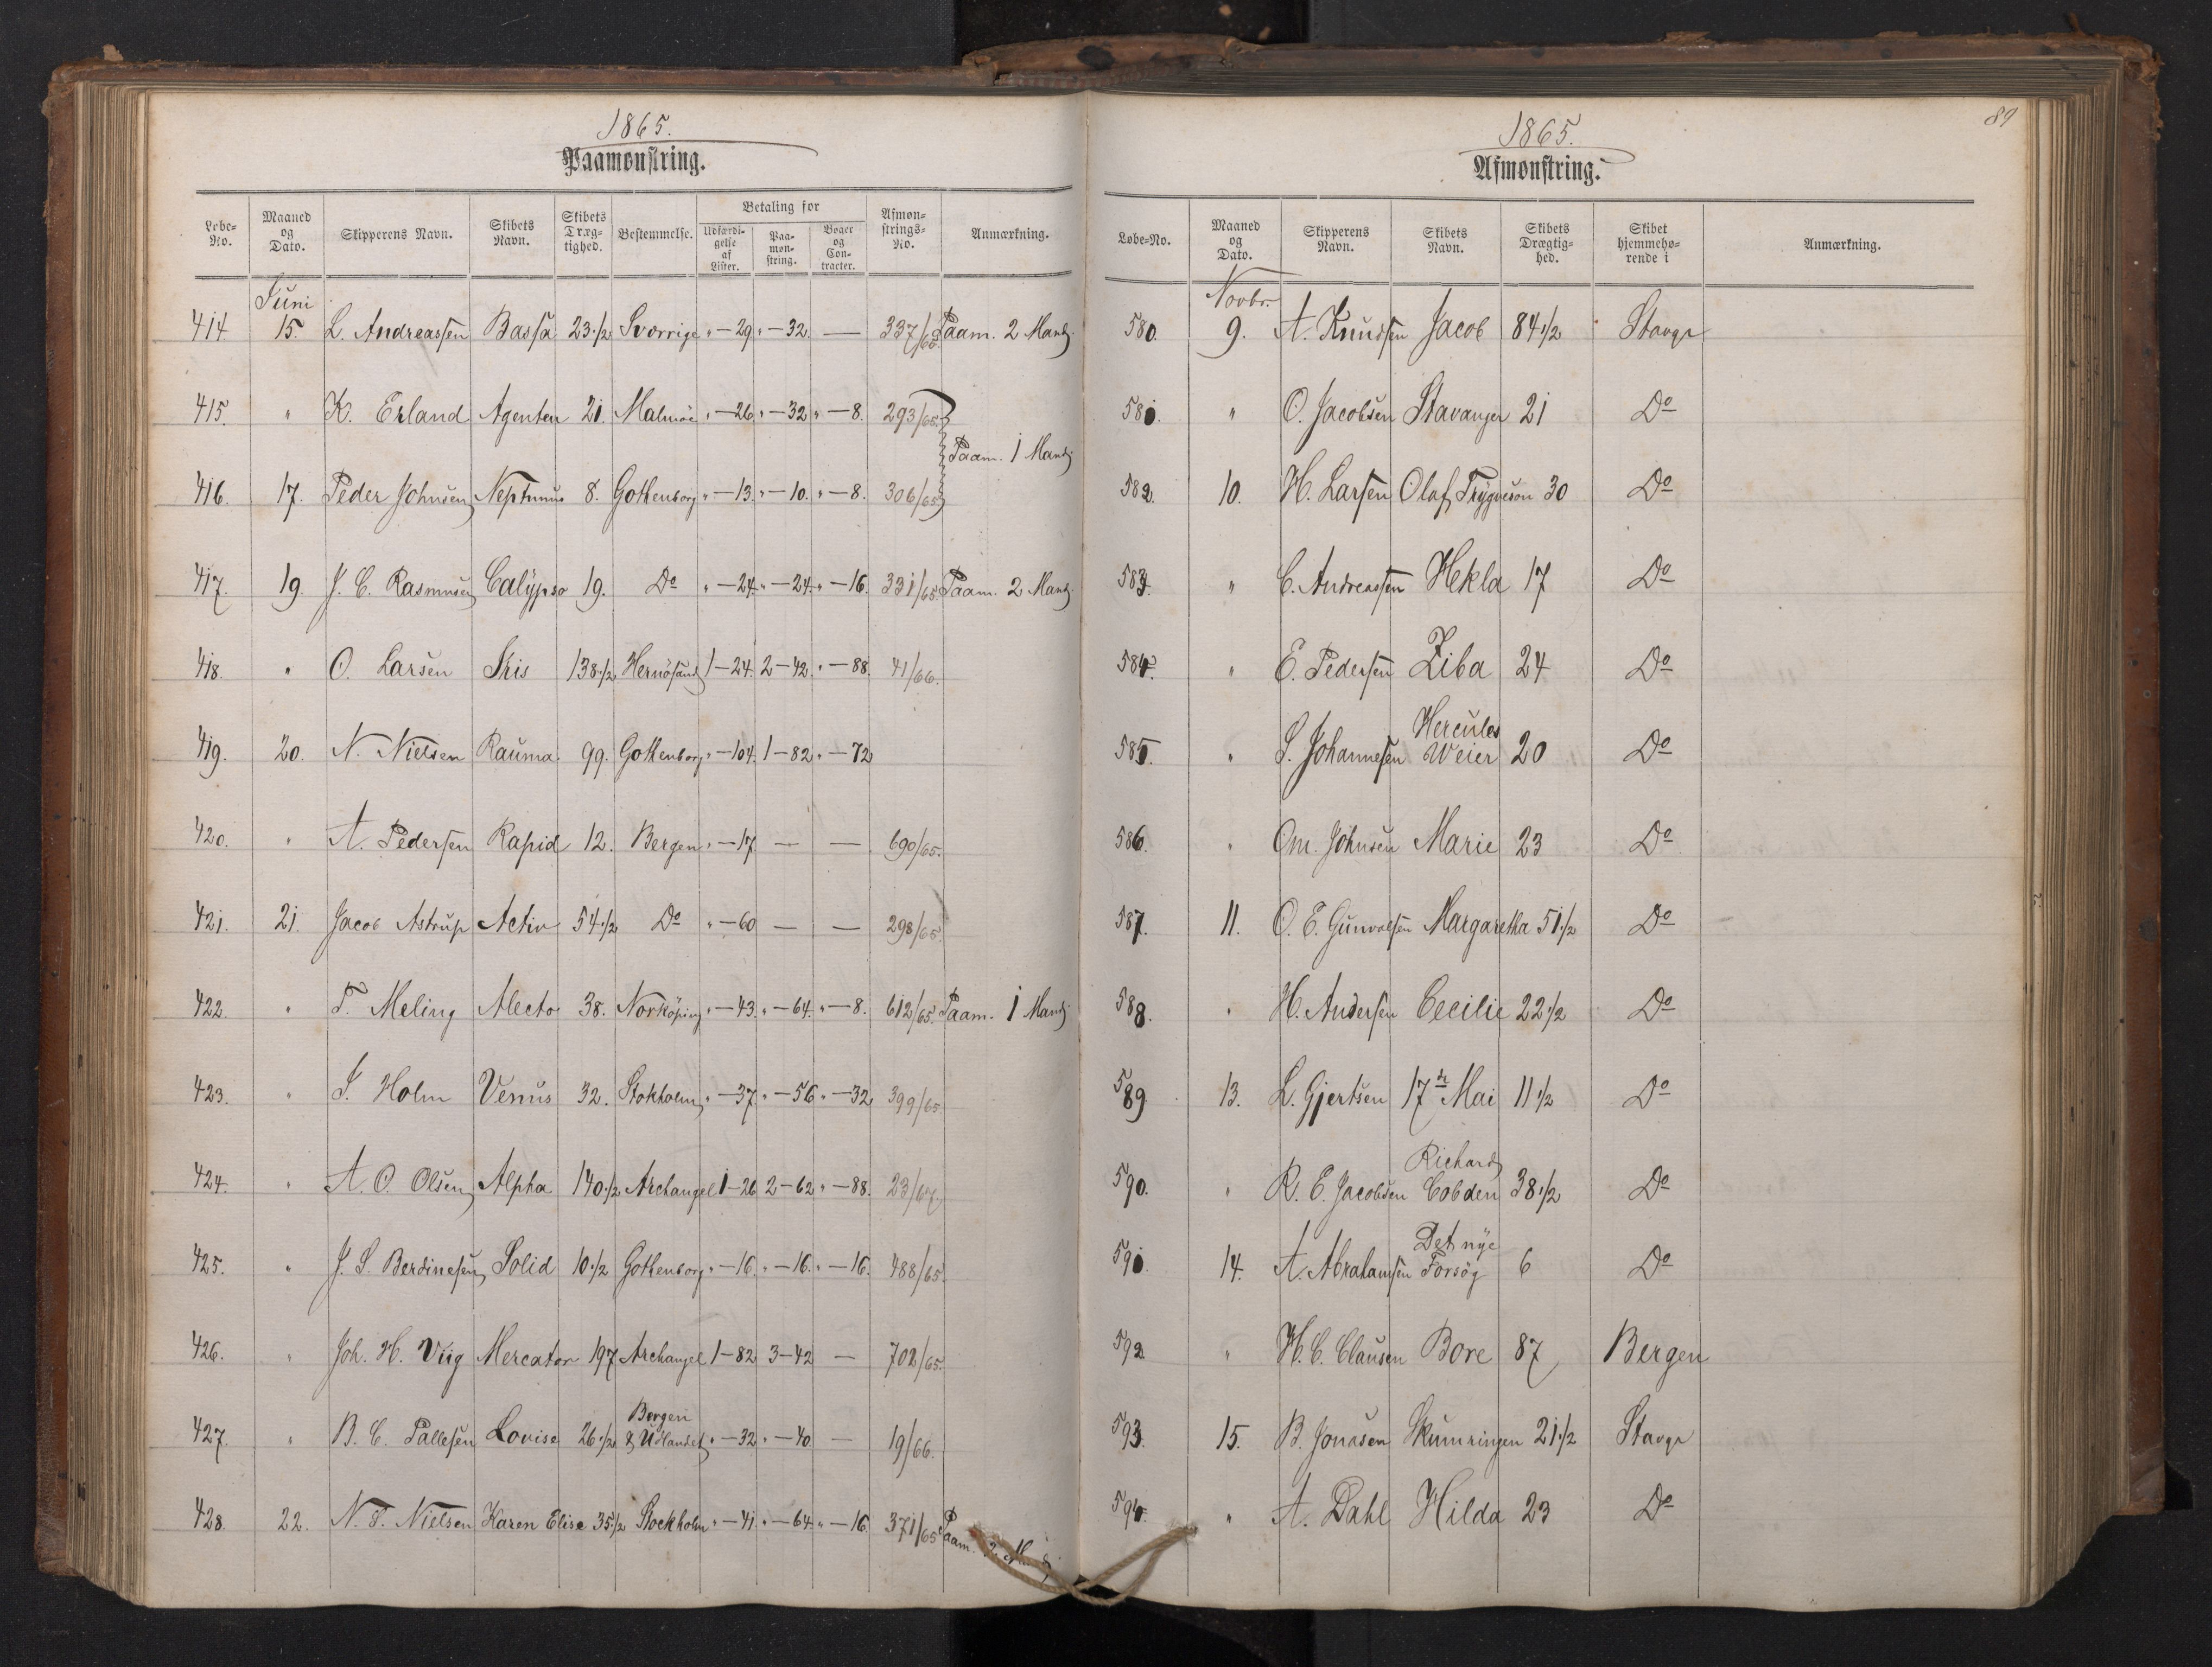 1865.
Paamønstring.
Løbe-No. | Maaned og Dato. | Skipperens Navn. | Skibets Navn. | Skibets Drægtighed. | Bestemmelse. | Betaling for | Udfærdigelse af Lister. | Paamønstring. | Bøger og Contracter. | Afmønstrings-No. | Anmærkning.
Juni
414. 15. L. Andreassen Bassa 23 1/2 Sverrige " - 29 " - 32 — 337/65. Paam. 2 Mand.
415. " K. Erland Agenten 21. Malmöe " - 26 " - 32 " - 8. 293/65.
Paam. 1 Mand
416. 17. Peder Johnsen Neptunus 8. Gothenborg " - 13. " - 10. " - 8. 306/65
417. 19. J. C. Rasmusen Calypso 19. Do " - 24. " - 24. " - 16. 331/65. Paam. 2 Mand.
418. " O. Larsen Iris 138 1/2 Hernösand 1 - 24. 2 - 42. " - 88. 41/66.
419. 20. N. Nielsen Rauma 99. Gothenborg " - 104. 1 - 82 " - 72
420. " A. Pedersen Rapid 12. Bergen " - 17 — — 690/65.
421. 21. Jacob Astrup Activ 54 1/2 Do " - 60 — — 298/65.
422. " T. Meling Alecto 38. Norköping " - 43. " - 64. " - 8. 612/65. Paam. 1 Mand
423. " J. Holm Venus 32. Stokholm " - 37 " - 56 " - 32 399/65
424. " A. O. Olsen Alpha 140 1/2 Archangel 1 - 26 2 - 62 " - 88. 23/67
425. " J. S. Berdinesen Solid 10 1/2 Gothenborg " - 16. " - 16. " - 16. 488/65.
426. " Joh. H. Viig Mercator 197 Archangel 1 - 82 3 - 42 — 702/65.
427. " B. C. Pallesen Lovise 26 1/2 Bergen & Udlandet " - 32 " - 40. — 19/66.
428. 22. N. T. Nielsen Karen Elise 35 1/2 Stockholm " - 41 " - 64. " - 16. 371/65 Paam. 2 Mand
89
1865.
Afmønstring.
Løbe-No. | Maaned og Dato. | Skipperens Navn. | Skibets Navn. | Skibets Drægtighed. | Skibet hjemmehørende i | Anmærkning.
Novbr.
580. 9. A. Knudsen Jacob 84 1/2 Stavgr
581. " O. Jacobsen Stavanger 21 Do
582. 10. H. Larsen Olaf Trygveson 30 Do
583. " C. Andreassen Hekla 17 Do
584. " E. Pedersen Ziba 24 Do
585. " S. Johannesen Hercules Weier 20 Do
586. " Om. Johnsen Marie 23 Do
587. 11. O. E. Gunvalsen Margaretha 51 1/2 Do
588. " H. Andersen Cecilie 22 1/2 Do
589 13. L. Gjertsen 17de Mai 11 1/2 Do
590. " R. E. Jacobsen Richard Cobden 38 1/2 Do
591. 14. A. Abrahamsen Det nye Forsøg 6 Do
592 " H. C. Clausen Bore 87 Bergen
593. 15. B. Jonasen Skumringen 21 1/2 Stavgr
594. " A. Dahl Hilda 23 Do